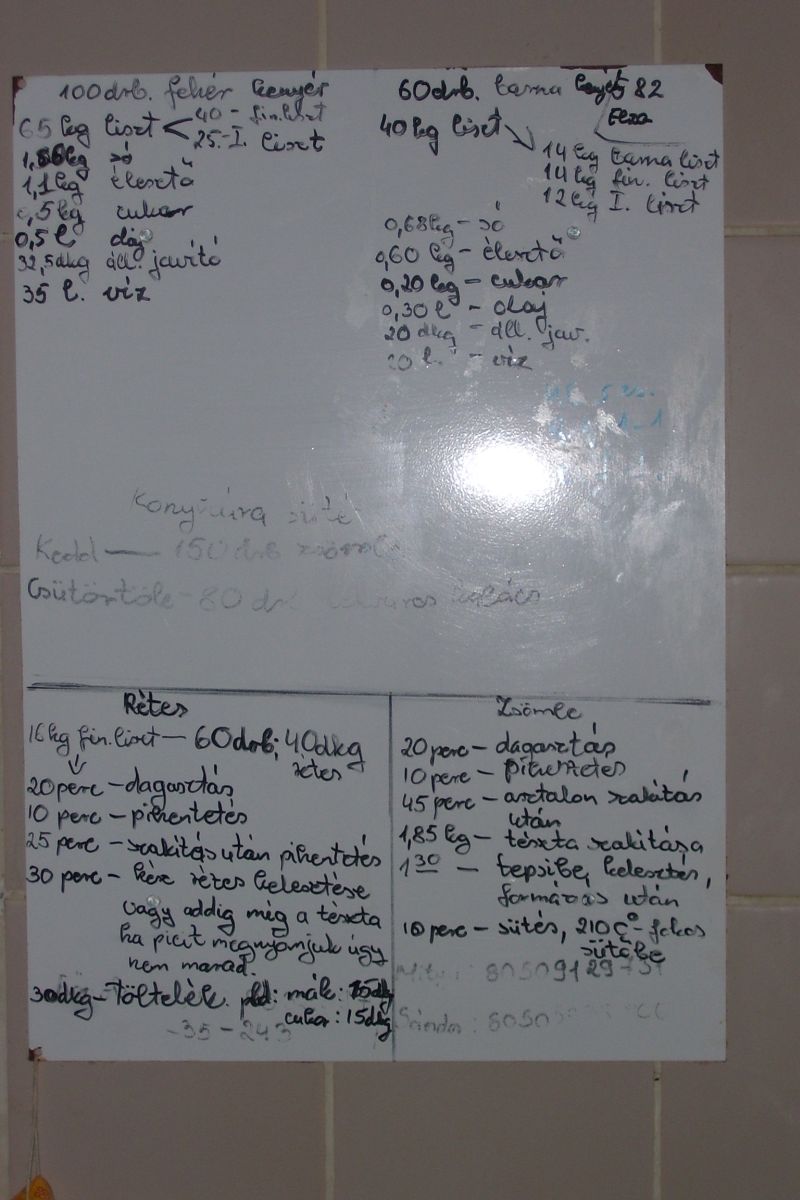 100 drb. fehér kenyér
65 kg liszt < 40 - fin. liszt
25.-I. liszt
só
1,1 kg élesztő
,5 kg cukor
0,5 l olaj
32,5 dkg áll. javító
35 l. víz
60 drb. barna
582
40 kg liszt
14 kg barna liszt
14 kg fin. liszt
12 kg I. liszt
0,68 kg - só
0,60 kg - élesztő
0,20 kg - cukor
0,30 l - olaj
20 dkg - áll. jav.
20 l. - víz
Konyhára
Kedd — 150 drb
Csütörtök - 80 drb kalács
Rétes
16 kg fin. liszt — 60 drb; 40 dkg
rétes
20 perc - dagasztás
10 perc - pihentetés
25 perc - szakítás után pihentetés
30 perc - kész rétes kelesztése
vagy addig míg a tészta
ha picit megnyomjuk úgy
nem marad.
30 dkg - Töltelék. pld: mák: 15 dkg
cukor: 15 dkg
-35-243
Zsömle
20 perc - dagasztás
10 perc - pihentetés
45 perc - asztalon szakítás
után
1,85 kg - tészta szakítása
1 30 — tepsibe, kelesztés,
formázás után
10 perc - sütés, 210 C°-fokos
sütőbe
80509129
Sándor: 8050